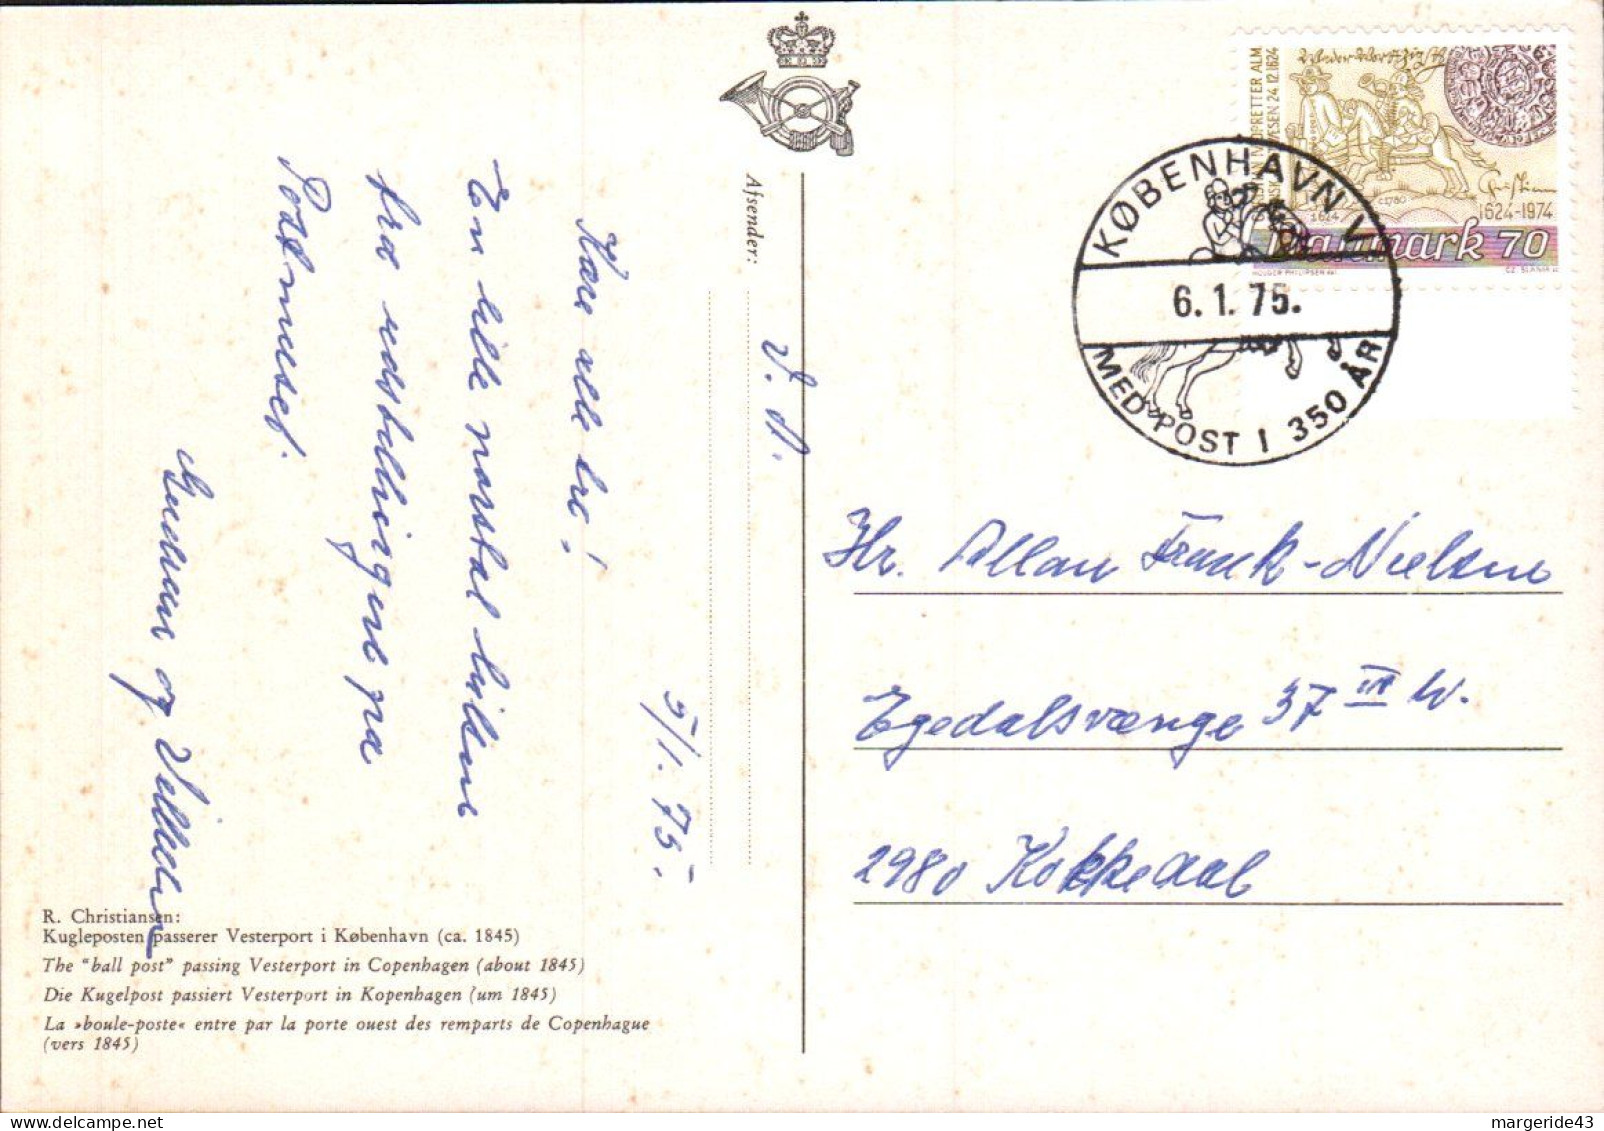 Afsender:
V. A.
5/1. 75.
Kære alle tre!
En lille nostal hilsen
fra udstillingen på
Postmuseet.
og
R. Christiansen:
Kugleposten passerer Vesterport i København (ca. 1845)
The "ball post" passing Vesterport in Copenhagen (about 1845)
Die Kugelpost passiert Vesterport in Kopenhagen (um 1845)
La »boule-poste« entre par la porte ouest des remparts de Copenhague
(vers 1845)
24.12.1624
1624
c1780
1624-1974
Danmark 70
HOLGER PHILIPSEN
CZ. SLANIA
KØBENHAVN V
6.1.75.
MED POST I 350 ÅR
Hr. Allan Franck-Nielsen
Egedalsvænge 37 III tv.
2980 Kokkedal
margeride43